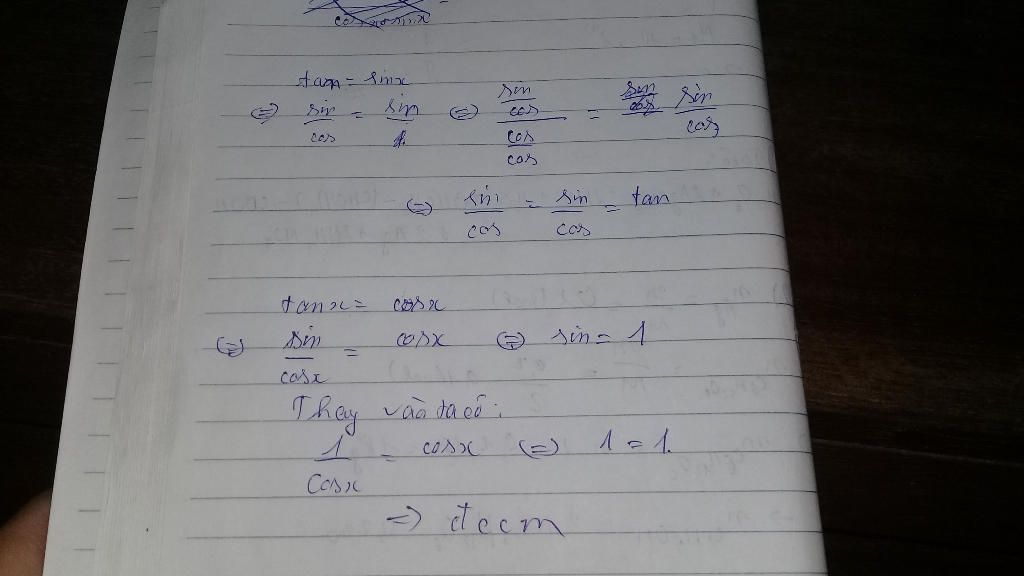 tan = sinx
⇔ sin/cos = sin/1 ⇔ (sin/cos)/(cos/cos) = sin/cos
⇔ sin/cos = sin/cos = tan
tanx = cosx
⇔ sin/cosx = cosx ⇔ sin = 1
Thay vào ta có:
1/Cosx = cosx ⇔ 1 = 1.
⇒ đccm